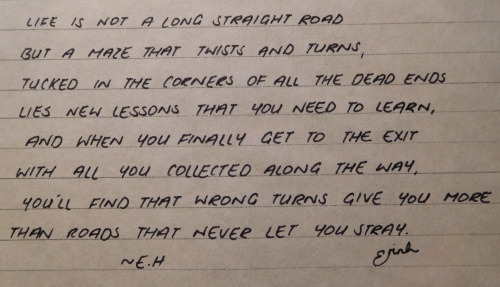 LIFE IS NOT A LONG STRAIGHT ROAD
BUT A MAZE THAT TWISTS AND TURNS,
TUCKED IN THE CORNERS OF ALL THE DEAD ENDS
LIES NEW LESSONS THAT YOU NEED TO LEARN,
AND WHEN YOU FINALLY GET TO THE EXIT
WITH ALL YOU COLLECTED ALONG THE WAY,
YOU'LL FIND THAT WRONG TURNS GIVE YOU MORE
THAN ROADS THAT NEVER LET YOU STRAY.
~E.H